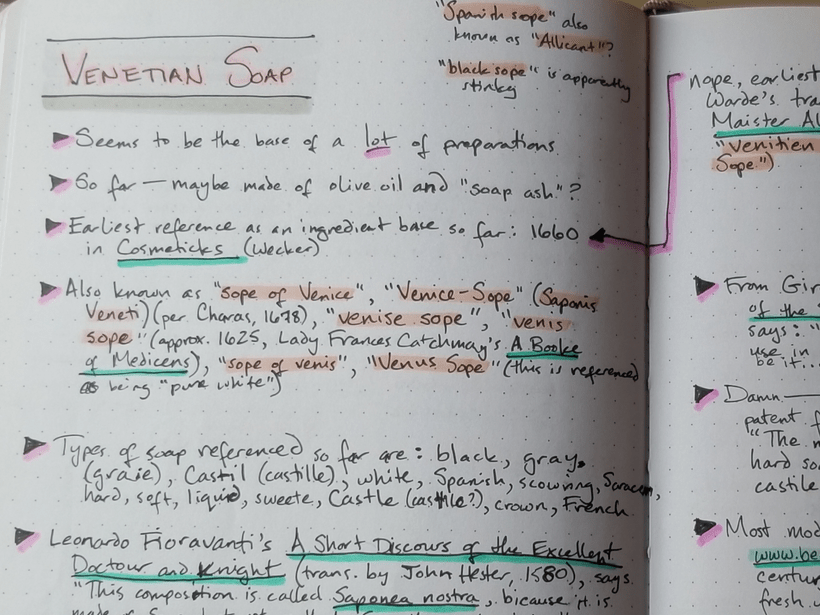 "Spanish sope" also
known as "Allicant"?
"black sope" is apparently
stinky
VENETIAN SOAP
Seems to be the base of a lot of preparations
So far — maybe made of olive oil and "soap ash"?
Earliest reference as an ingredient base so far: 1660
in Cosmeticks (Wecker)
Also known as "sope of Venice", "Venice-Sope" (Saponis
Veneti) (per Charas, 1678), "venise sope", "venis
sope" (approx. 1625, Lady Frances Catchmay's A Booke
of Medicens), "sope of venis", "Venus Sope" (this is referenced
as being "pure white")
Types of soap referenced so far are: black, gray,
(graie), Castil (castille), white, Spanish, scowring, Saracen,
hard, soft, liquid, sweete, Castle (casthle?), crown, French
Leonardo Fioravanti's A Short Discours of the Excellent
Doctour and Knight (trans. by John Hester, 1580), says
"This composition is called Saponea nostra, bicause it is
nope, earliest
Warde's tra
Maister Al
"Venitien
Sope.")
From Gir
of the
says: "
use in
be it...
Damn —
patent f
"The m
hard so
castile
Most mod
www.be
centur
fresh